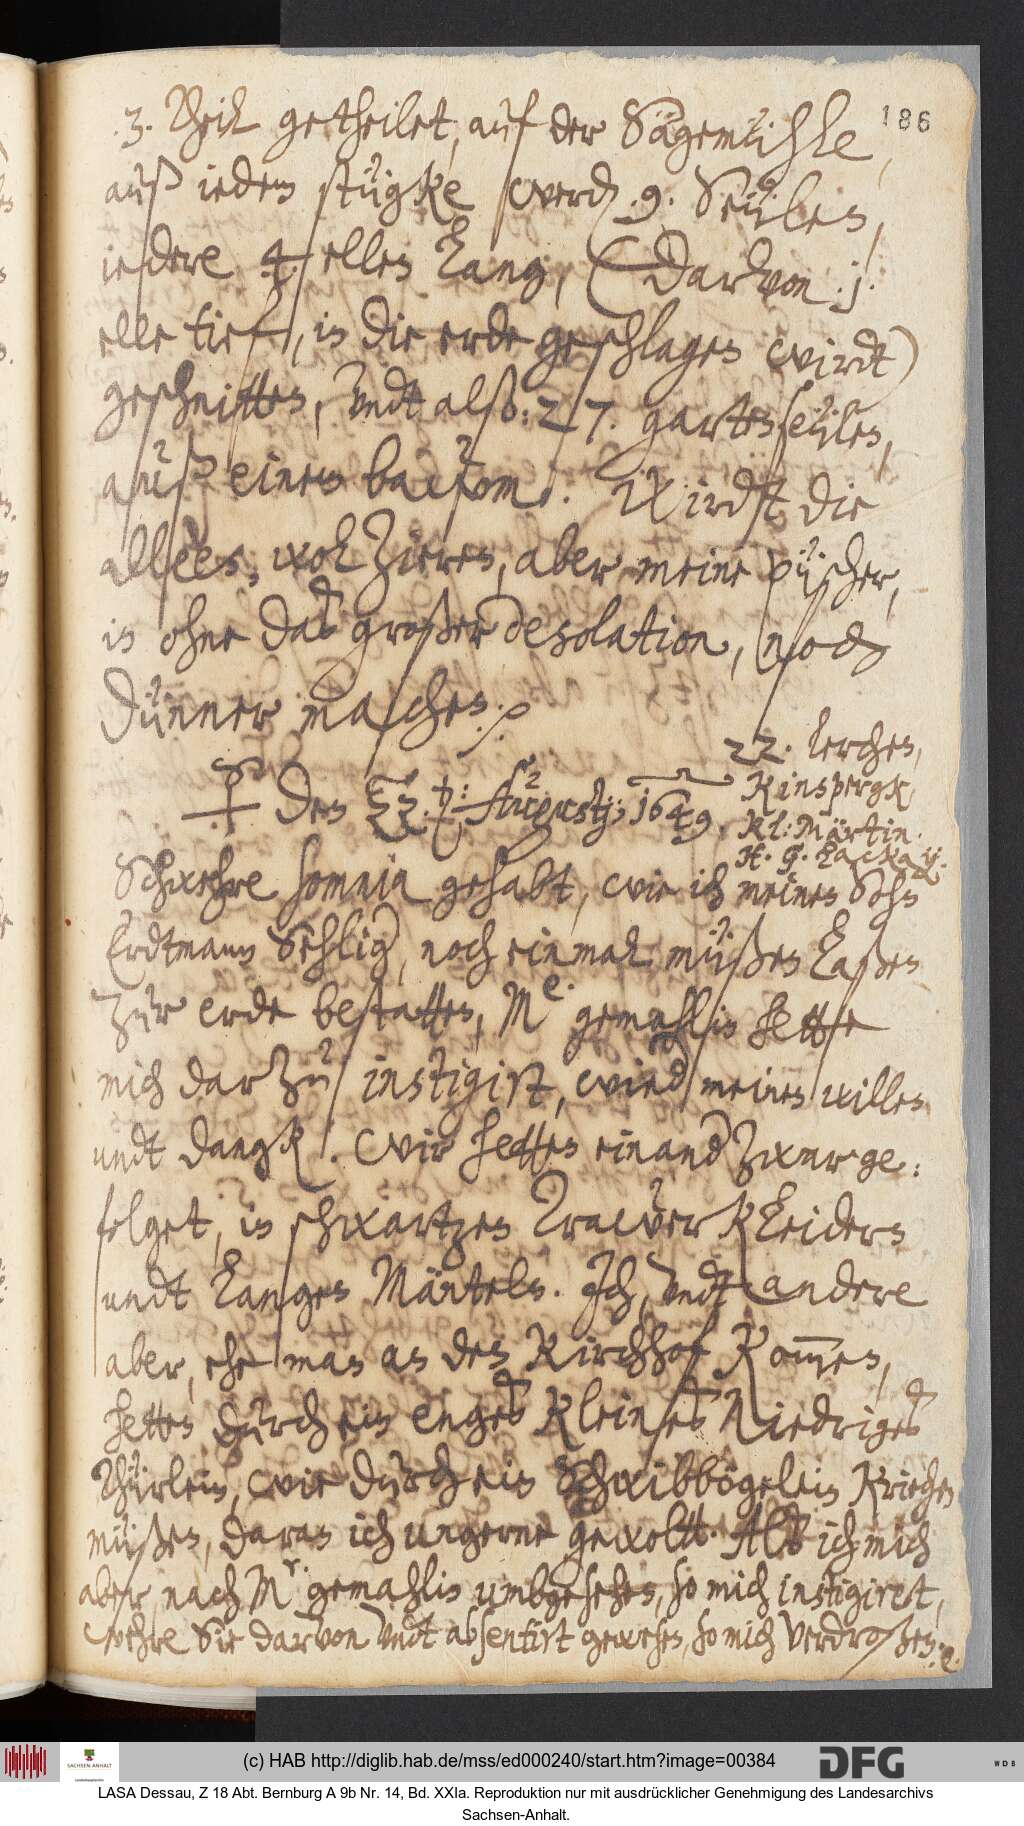 186
3. Theil getheilet, auf der Sägemühle,
auß iedem stügke werden .9. Seülen,
iedere 4 ellen lang, (darvon .j.
elle tief, in die erde geschlagen wirdt)
geschnitten, undt alß: 27. gartenseülen,
auß einem baüm. Wirdt die
alleèn, wol zieren, aber meine püscher,
in ohne das großer desolation, noch
dünner machen.
den 23. Augustj; 1649.
22. lerchen,
Rinspergk,
Kl: Märtin
H. G. Lackay.
Schwehre somnia gehabt, wie ich meinen Sohn
Erdtmann Sehlig, noch einmal müßen laßen
zur erde bestatten, Me. gemahlin hette
mich darzu instigirt, wieder meinen willen
undt dangk. Wir hetten einander zwar ge:
folget, in schwartzen Trawer kleidern
undt langen Mänteln. Ich, undt andere
aber, ehe man an den Kirchhof kommen,
hetten durch ein enges kleines Niedriges
Thürlein, wie durch ein Schwibbögelein kriechen
müßen, daran ich ungerne gewolt. Alß ich mich
aber, nach Mr. gemahlin umbgesehen, so mich instigiret,
wehre Sie darvon undt absentirt gewesen, so mich verdroßen.
(c) HAB http://diglib.hab.de/mss/ed000240/start.htm?image=00384
SACHSEN-ANHALT
DFG
WDB
LASA Dessau, Z 18 Abt. Bernburg A 9b Nr. 14, Bd. XXIa. Reproduktion nur mit ausdrücklicher Genehmigung des Landesarchivs
Sachsen-Anhalt.